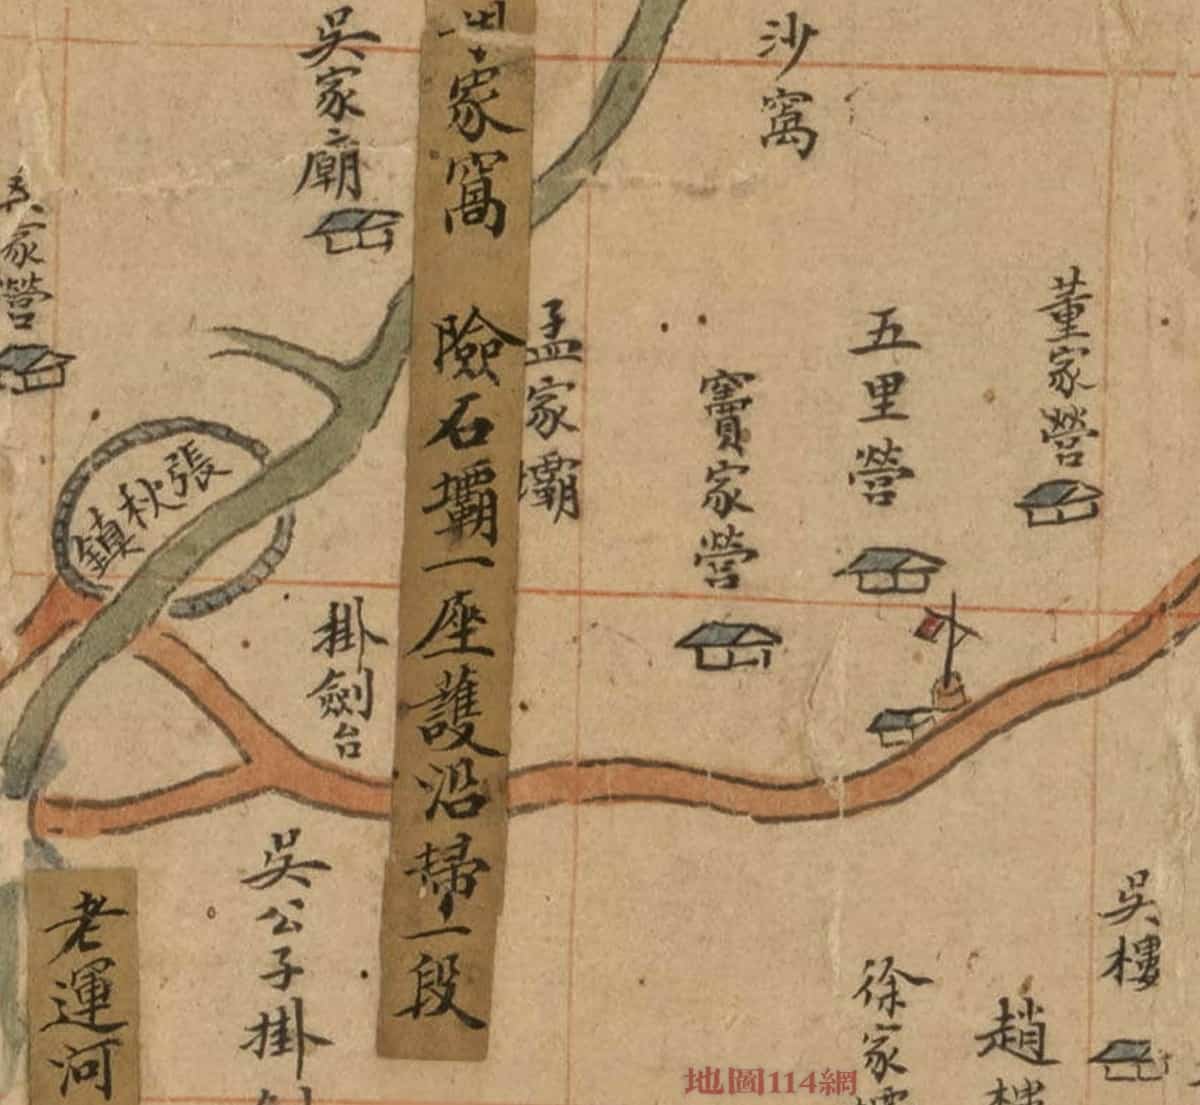 沙窩
董家營
五里營
竇家營
孟家壩
家窩 險石壩一座護沿埽一段
吳家廟
家營
張秋鎮
掛劍台
吳樓
趙樓
徐家
吳公子掛
老運河
地圖114網